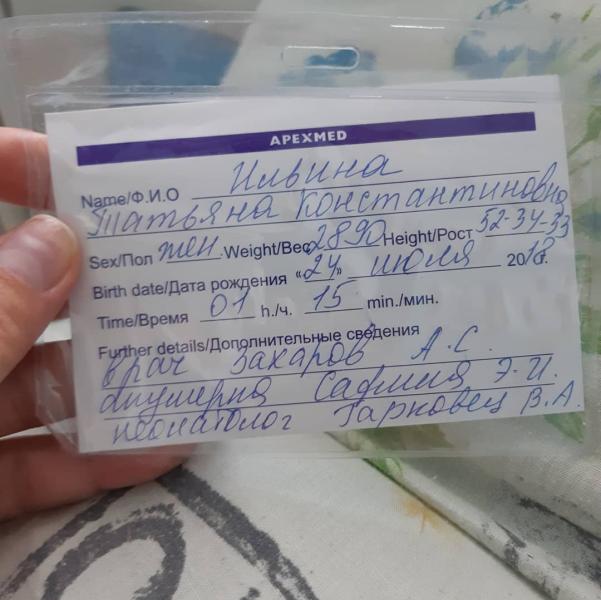 APEXMED
Name/Ф.И.О Ильина
Татьяна Константиновна
Sex/Пол жен. Weight/Вес 2890 Height/Рост 52-34-33
Birth date/Дата рождения «24» июля 2018г.
Time/Время 01 h./ч. 15 min./мин.
Further details/Дополнительные сведения
врач Захаров А.С.
акушерка Э.И.
неонатолог Гарковец В.А.